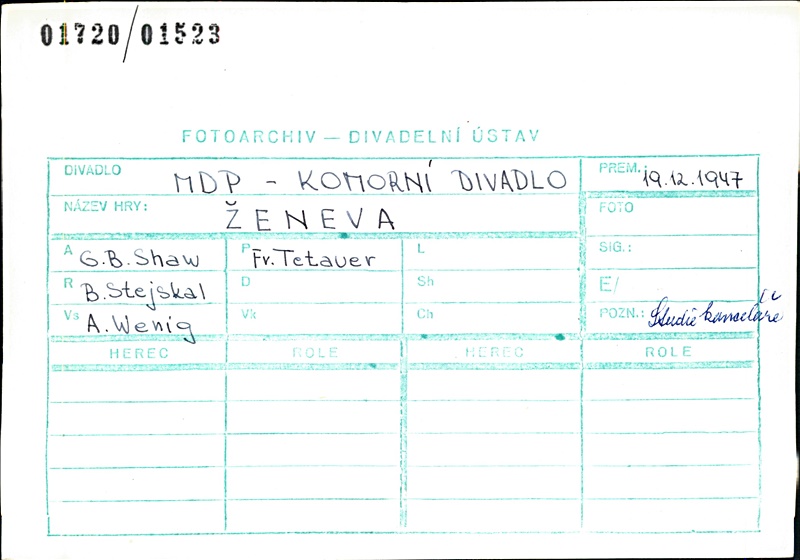 01720/01523
FOTOARCHIV — DIVADELNÍ ÚSTAV
DIVADLO MDP - KOMORNÍ DIVADLO PREM.: 19.12.1947
NÁZEV HRY: ŽENEVA FOTO
A G.B. Shaw P Fr. Tetauer L SIG.:
R B. Stejskal D Sh E/
Vs A. Wenig Vk Ch POZN.: Studie kanceláře
HEREC ROLE HEREC ROLE